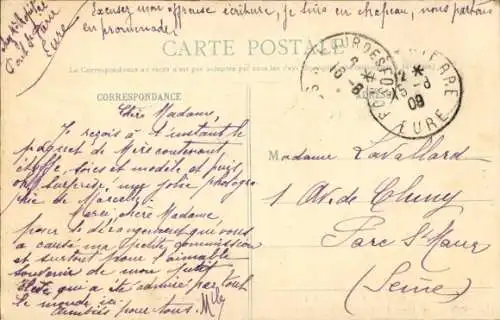 Excusez mon affreuse écriture, je suis en chapeau, nous partons
en promenade!
Pont St Pierre
Eure
CARTE POSTALE
CORRESPONDANCE
Chère Madame,
Je reçois à l'instant le
paquet de Mère contenant,
étoffe, soies et modèle et puis
oh! surprise, une jolie photogra-
phie de Marcelle.
Merci, chère Madame
pour le dérangement que vous
a causé ma petite commission
et surtout pour l'aimable
souvenir de mon petit
élève qui a été admirée par tout
le monde ici.
Amitiés pour tous.
Madame Lavallard
1 Av. de Cluny
Parc St Maur
(Seine)
PIERRE
09
EURE